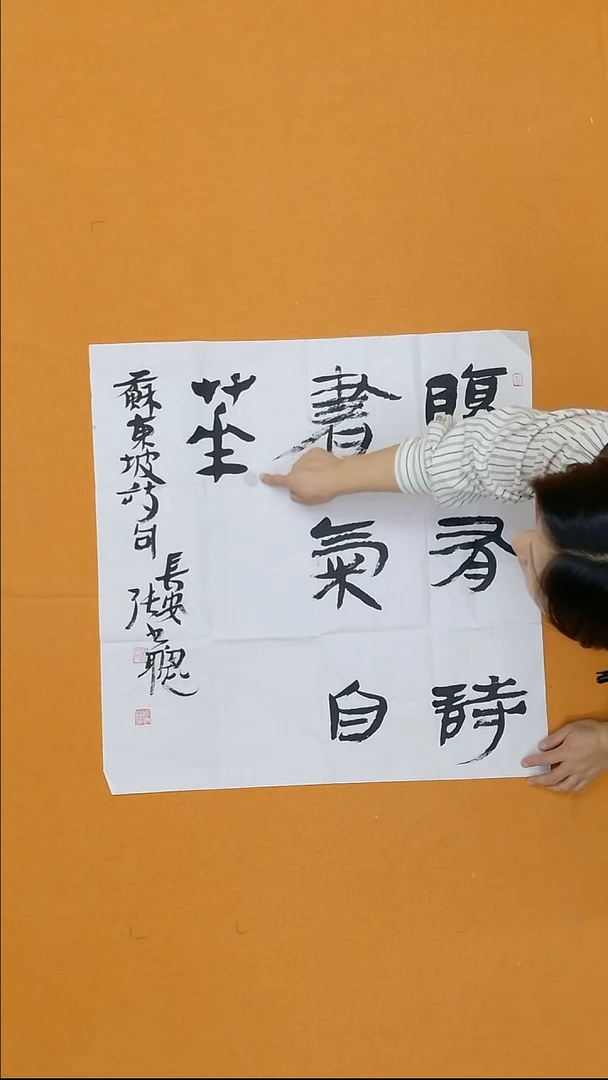 腹有詩
書氣自
華
蘇東坡詩句
長安張聰